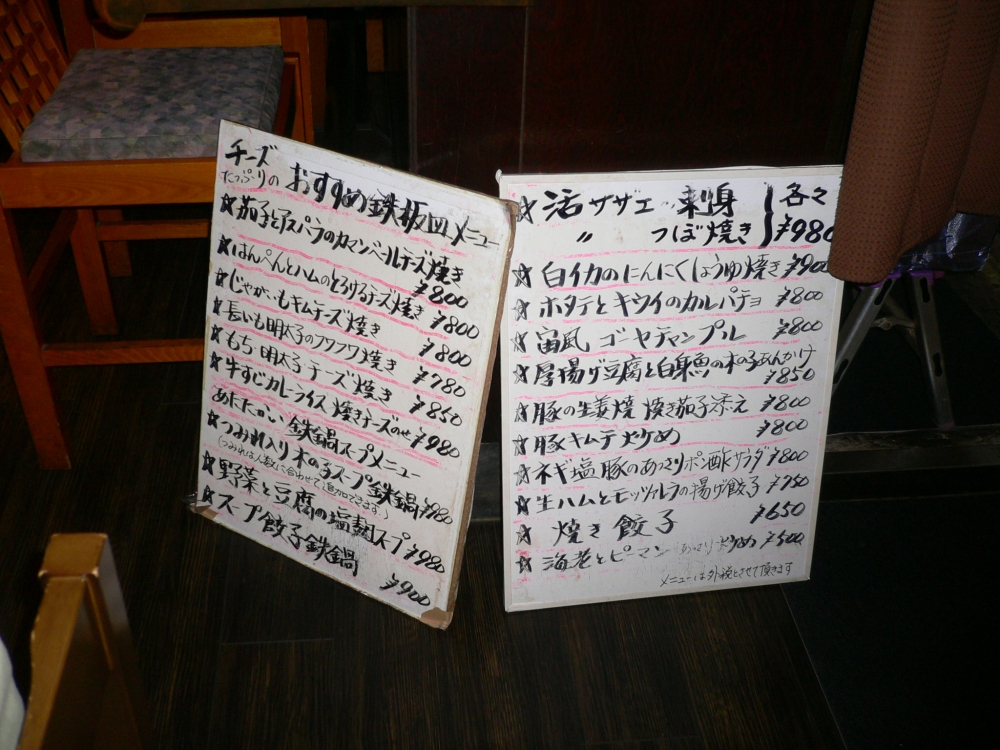 チーズ
たっぷりの おすすめ鉄板皿メニュー
☆茄子とアスパラのカマンベールチーズ焼き
¥800
☆はんぺんとハムのとろけるチーズ焼き ¥800
☆じゃがいもキムチーズ焼き ¥800
☆長いも明太子のフワフワ焼き ¥780
☆もち明太子チーズ焼き ¥850
☆牛すじカレーライス焼きチーズのせ ¥980
あたたかい 鉄鍋スープメニュー
☆つみれ入り木の子スープ鉄鍋 ¥980
(つみれは人数に合わせて追加できます。)
☆野菜と豆腐の塩麹スープ ¥980
☆スープ餃子鉄鍋
¥900
☆ 活サザエ 刺身 } 各々
〃 つぼ焼き ¥980
☆白イカのにんにくしょうゆ焼き ¥900
☆ホタテとキウイのカルパチョ ¥800
☆宙風 ゴーヤチャンプル ¥800
☆厚揚げ豆腐と白身魚の木の子あんかけ
¥850
☆豚の生姜焼 焼き茄子添え ¥800
☆豚キムチ炒め ¥800
☆ネギ塩豚のあっさりポン酢サラダ ¥800
☆生ハムとモッツァレラの揚げ餃子 ¥750
☆ 焼き餃子 ¥650
☆海老とピーマン あっさり炒め ¥500
メニューは外税とさせて頂きます